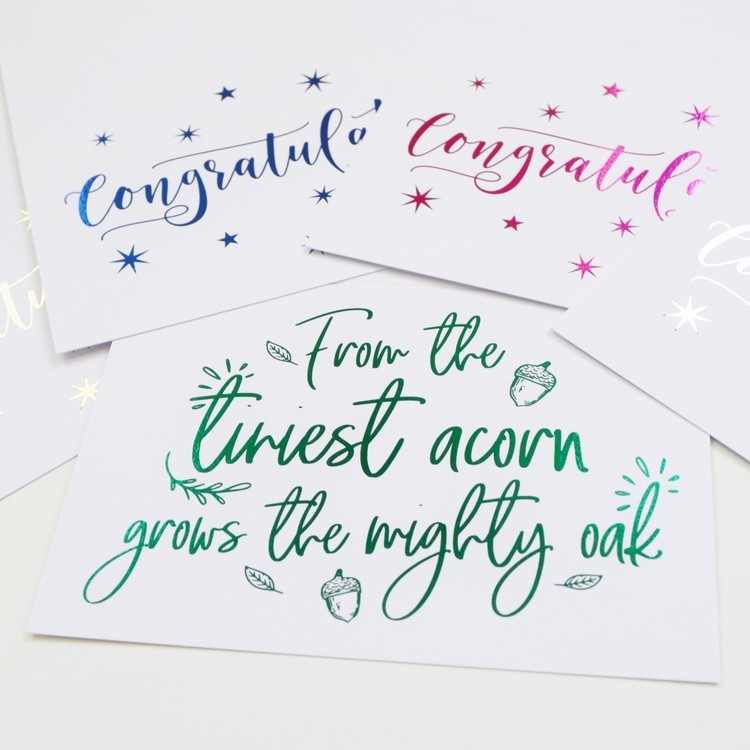 Congratul
Congratul
From the
tiniest acorn
grows the mighty oak